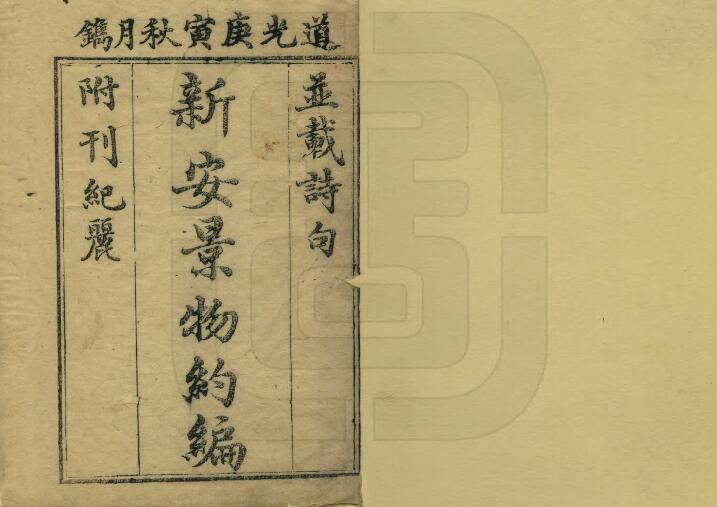 道光庚寅秋月鐫
並載詩句
新安景物約編
附刊紀麗